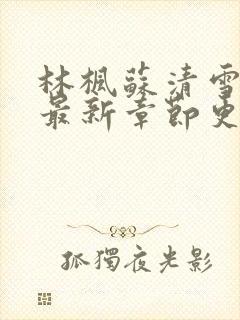 林楓蘇清雪
最新章節更
孤獨夜光影